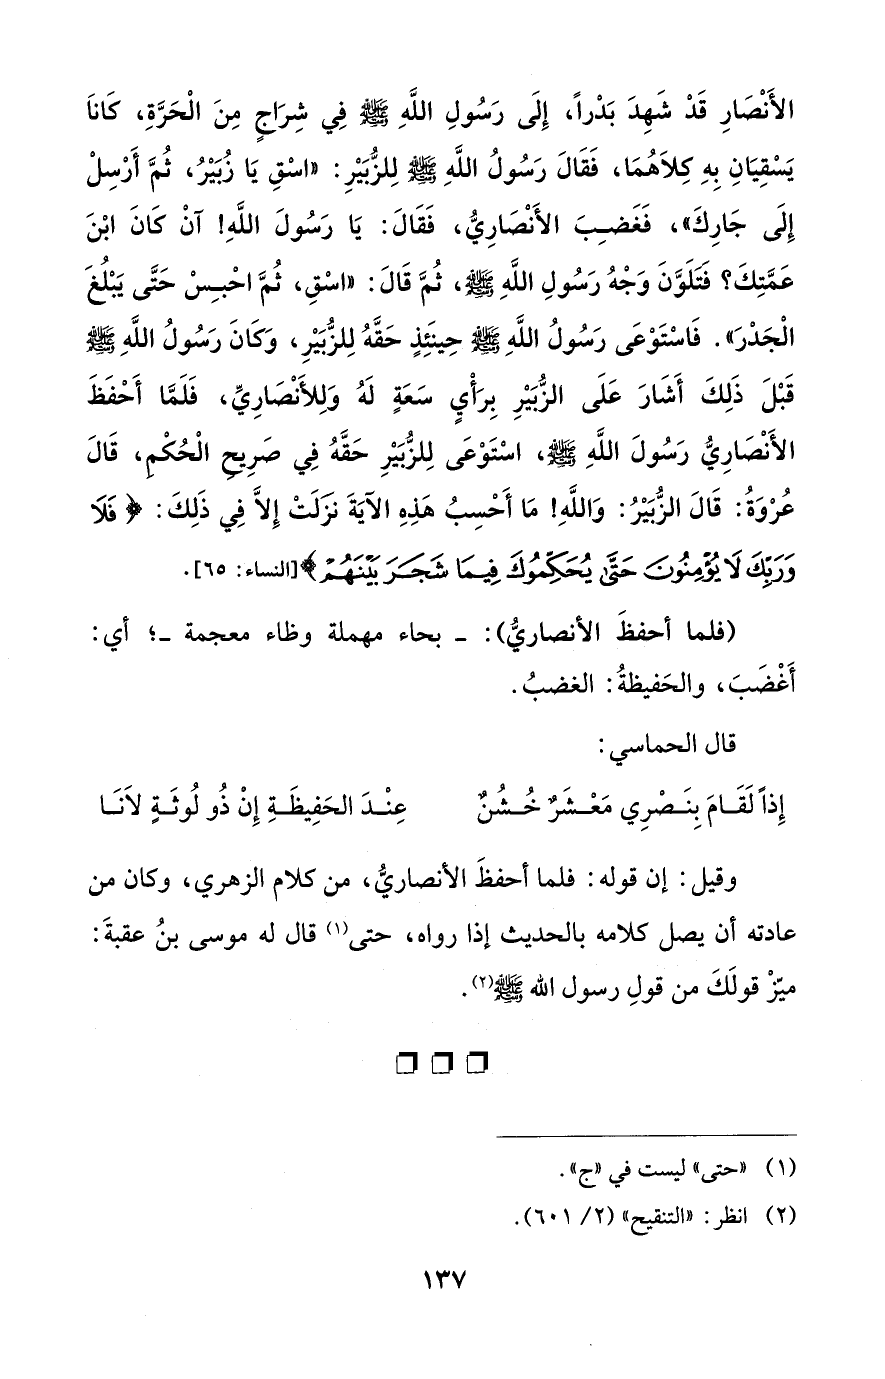 الأَنْصَارِ قَدْ شَهِدَ بَدْراً، إِلَى رَسُولِ اللَّهِ ﷺ فِي شِرَاجٍ مِنَ الْحَرَّةِ، كَانَا
يَسْقِيَانِ بِهِ كِلاَهُمَا، فَقَالَ رَسُولُ اللَّهِ ﷺ لِلزُّبَيْرِ: «اسْقِ يَا زُبَيْرُ، ثُمَّ أَرْسِلْ
إِلَى جَارِكَ»، فَغَضِبَ الأَنْصَارِيُّ، فَقَالَ: يَا رَسُولَ اللَّهِ! آنْ كَانَ ابْنَ
عَمَّتِكَ؟ فَتَلَوَّنَ وَجْهُ رَسُولِ اللَّهِ ﷺ، ثُمَّ قَالَ: «اسْقِ، ثُمَّ احْبِسْ حَتَّى يَبْلُغَ
الْجَدْرَ». فَاسْتَوْعَى رَسُولُ اللَّهِ ﷺ حِينَئِذٍ حَقَّهُ لِلزُّبَيْرِ، وَكَانَ رَسُولُ اللَّهِ ﷺ
قَبْلَ ذَلِكَ أَشَارَ عَلَى الزُّبَيْرِ بِرَأْيٍ سَعَةٍ لَهُ وَلِلأَنْصَارِيِّ، فَلَمَّا أَحْفَظَ
الأَنْصَارِيُّ رَسُولَ اللَّهِ ﷺ، اسْتَوْعَى لِلزُّبَيْرِ حَقَّهُ فِي صَرِيحِ الْحُكْمِ، قَالَ
عُرْوَةُ: قَالَ الزُّبَيْرُ: وَاللَّهِ! مَا أَحْسِبُ هَذِهِ الآيَةَ نَزَلَتْ إِلاَّ فِي ذَلِكَ: ﴿فَلَا
وَرَبِّكَ لَا يُؤْمِنُونَ حَتَّىٰ يُحَكِّمُوكَ فِيمَا شَجَرَ بَيْنَهُمْ﴾[النساء: ٦٥].
(فلما أحفظَ الأنصاريُّ): ـ بحاء مهملة وظاء معجمة ـ؛ أي:
أَغْضَبَ، والحَفيظةُ: الغضبُ.
قال الحماسي:
إِذاً لَقَـامَ بِنَـصْرِي مَعْـشَرٌ خُـشُنٌ عِنْـدَ الحَفِيظَـةِ إِنْ ذُو لُوثَـةٍ لاَنَـا
وقيل: إن قوله: فلما أحفظَ الأنصاريُّ، من كلام الزهري، وكان من
عادته أن يصل كلامه بالحديث إذا رواه، حتى(١) قال له موسى بنُ عقبةَ:
ميّزْ قولَكَ من قولِ رسول الله ﷺ(٢).
(١) «حتى» ليست في «ج».
(٢) انظر: «التنقيح» (٢/ ٦٠١).
١٣٧